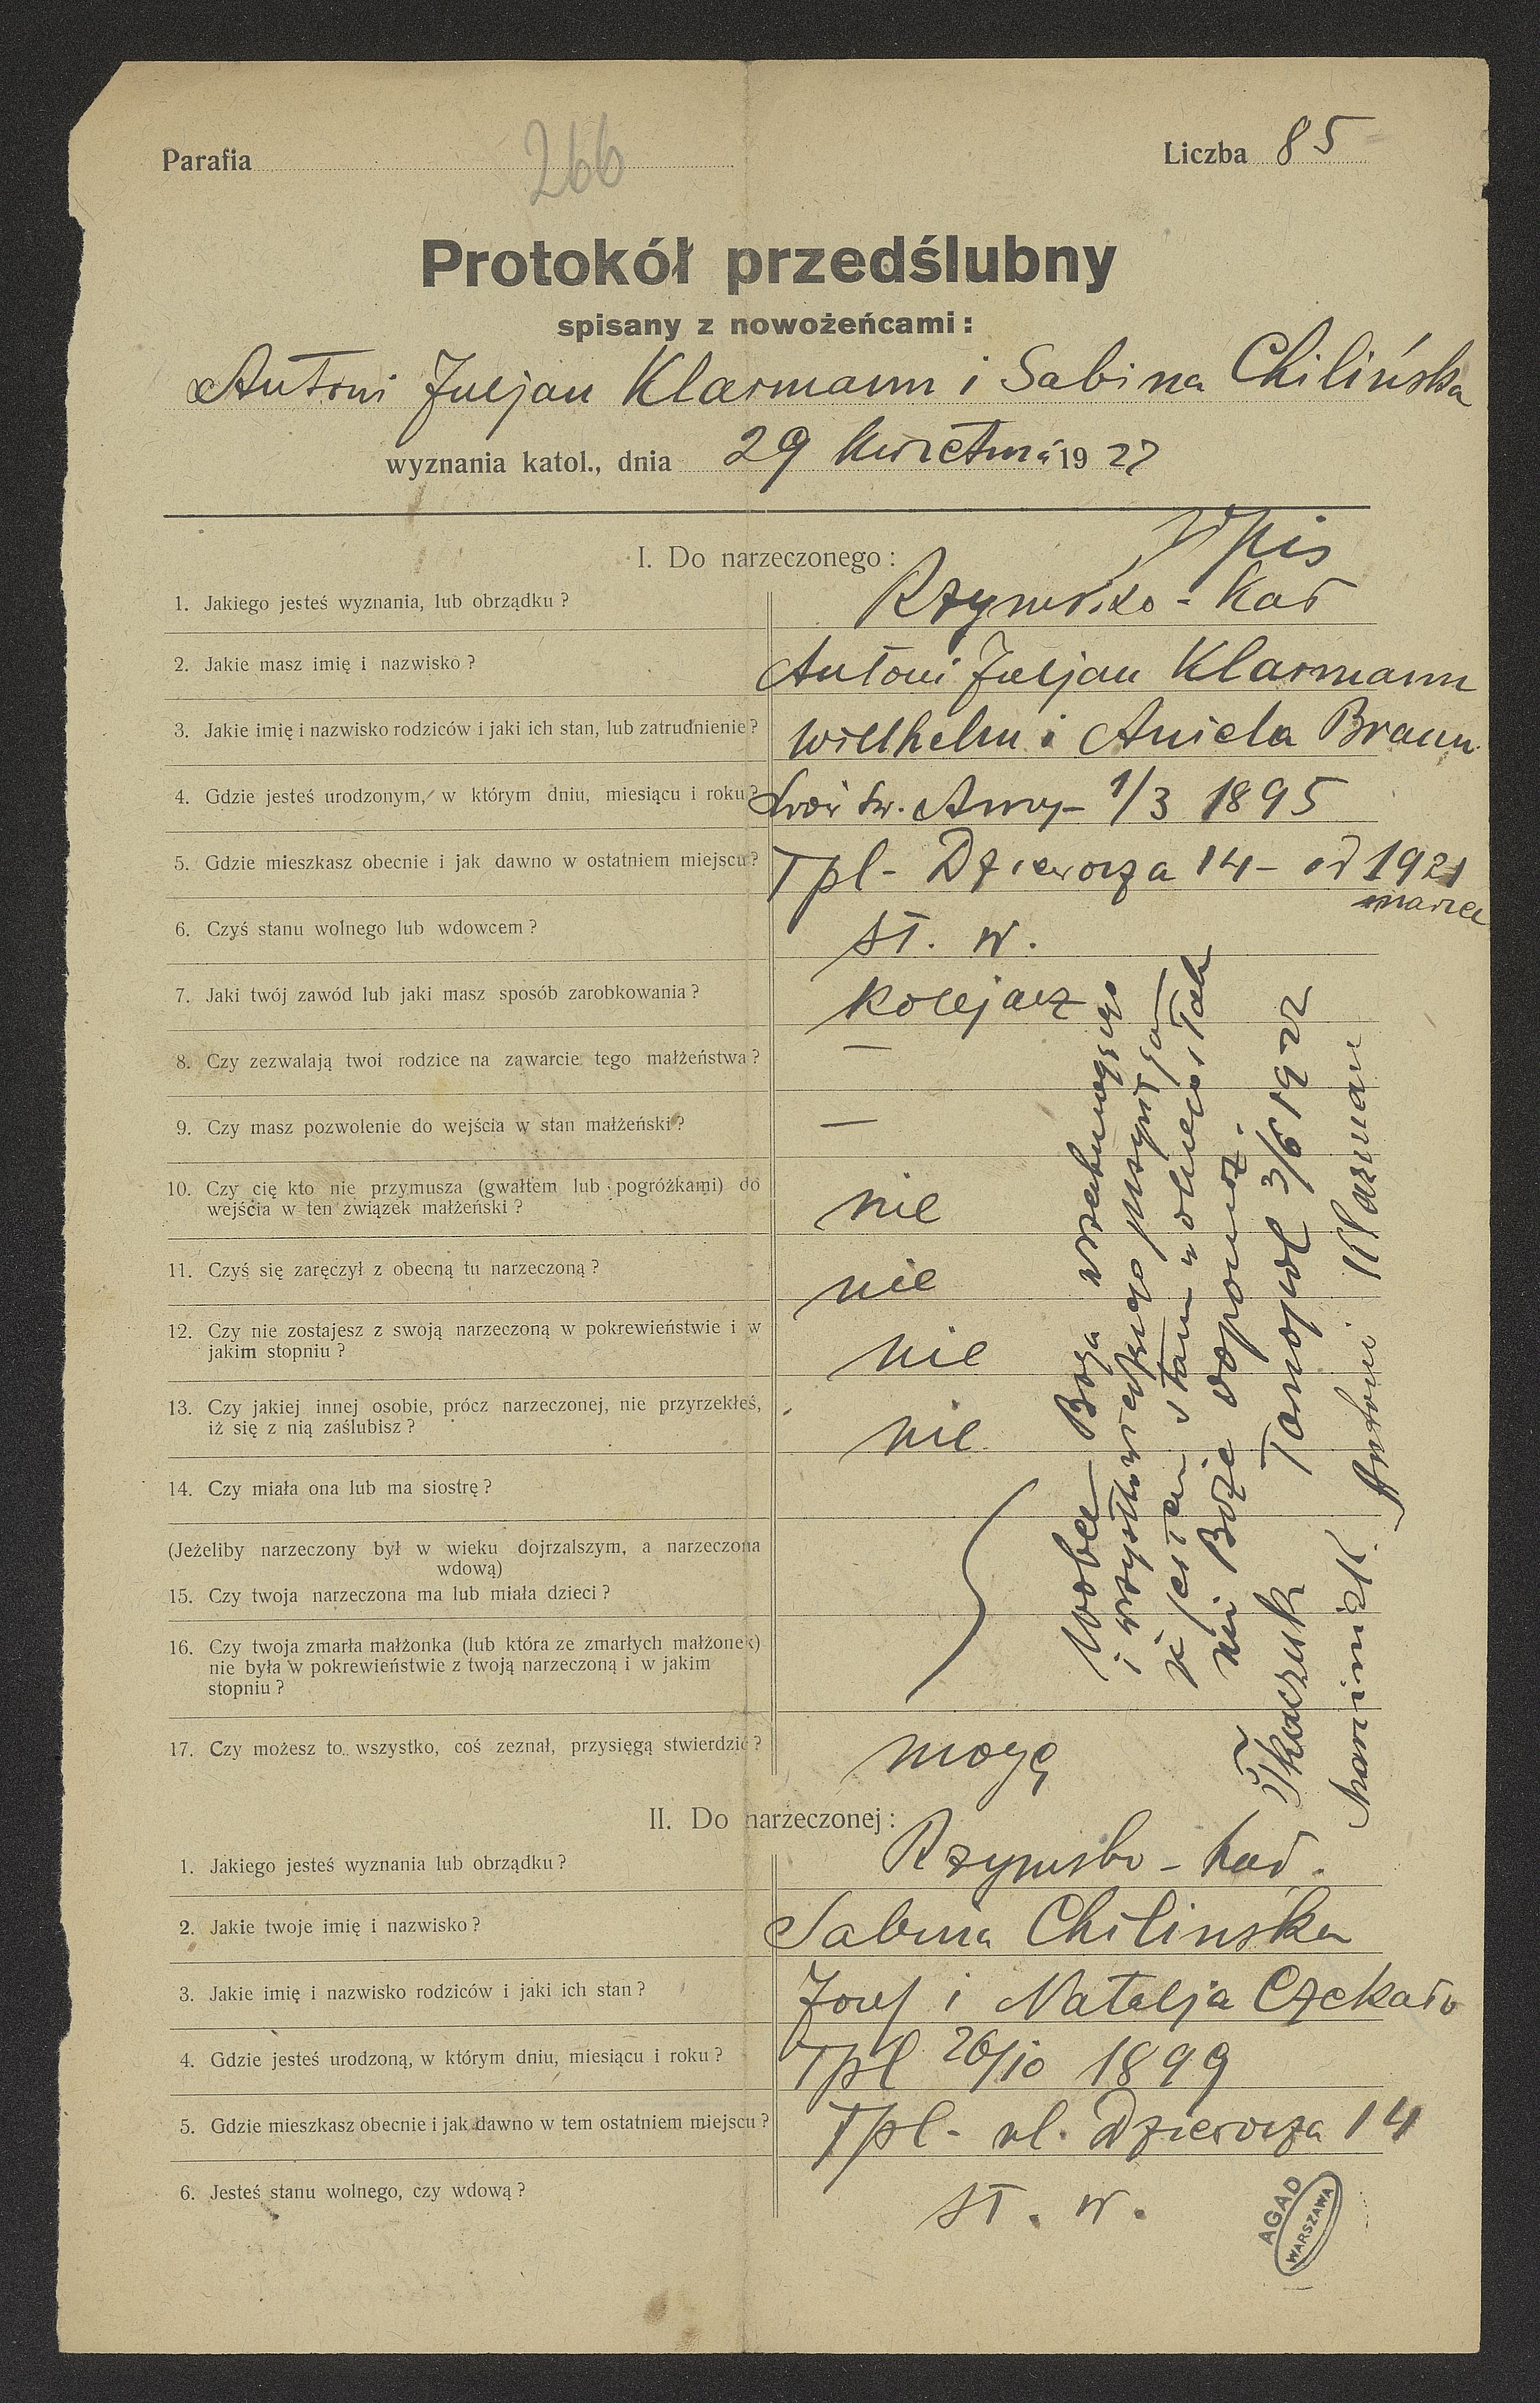 Parafia 266 Liczba 85
Protokół przedślubny
spisany z nowożeńcami:
Antoni Juljan Klarmann i Sabina Chilińska
wyznania katol., dnia 29 kwietnia 1922
I. Do narzeczonego:
1. Jakiego jesteś wyznania, lub obrządku? Rzymsko-kat
2. Jakie masz imię i nazwisko? Antoni Juljan Klarmann
3. Jakie imię i nazwisko rodziców i jaki ich stan, lub zatrudnienie? Wilhelm i Aniela Braun
4. Gdzie jesteś urodzonym, w którym dniu, miesiącu i roku? św. Anny - 1/3 1895
5. Gdzie mieszkasz obecnie i jak dawno w ostatniem miejscu? Tpl - Dzierorza 14 - od 1921
marca
6. Czyś stanu wolnego lub wdowcem? st. w.
7. Jaki twój zawód lub jaki masz sposób zarobkowania? kolejarz
8. Czy zezwalają twoi rodzice na zawarcie tego małżeństwa? —
9. Czy masz pozwolenie do wejścia w stan małżeński? —
10. Czy cię kto nie przymusza (gwałtem lub pogróżkami) do
wejścia w ten związek małżeński? nie
11. Czyś się zaręczył z obecną tu narzeczoną? nie
12. Czy nie zostajesz z swoją narzeczoną w pokrewieństwie i w
jakim stopniu? nie
13. Czy jakiej innej osobie, prócz narzeczonej, nie przyrzekłeś,
iż się z nią zaślubisz? nie
14. Czy miała ona lub ma siostrę?
(Jeżeliby narzeczony był w wieku dojrzalszym, a narzeczona
wdową)
15. Czy twoja narzeczona ma lub miała dzieci?
16. Czy twoja zmarła małżonka (lub która ze zmarłych małżonek)
nie była w pokrewieństwie z twoją narzeczoną i w jakim
stopniu?
17. Czy możesz to wszystko, coś zeznał, przysięgą stwierdzić? mogę
Wobec Boga wszechmogącego
i wszystkowiedzącego przysięgam
że jestem stanu wolnego Tak
mi Boże dopomóż.
Tarnopol 3/6 1922
Tkaczuk
Antoni Klarman
II. Do narzeczonej:
1. Jakiego jesteś wyznania lub obrządku? Rzymsko-kat.
2. Jakie twoje imię i nazwisko? Sabina Chilinska
3. Jakie imię i nazwisko rodziców i jaki ich stan? Józef i Natalja Czekało
4. Gdzie jesteś urodzoną, w którym dniu, miesiącu i roku? Tpl 26/10 1899
5. Gdzie mieszkasz obecnie i jak dawno w tem ostatniem miejscu? Tpl - ul. Dzierorza 14
6. Jesteś stanu wolnego, czy wdową? st. w.
AGAD
WARSZAWA